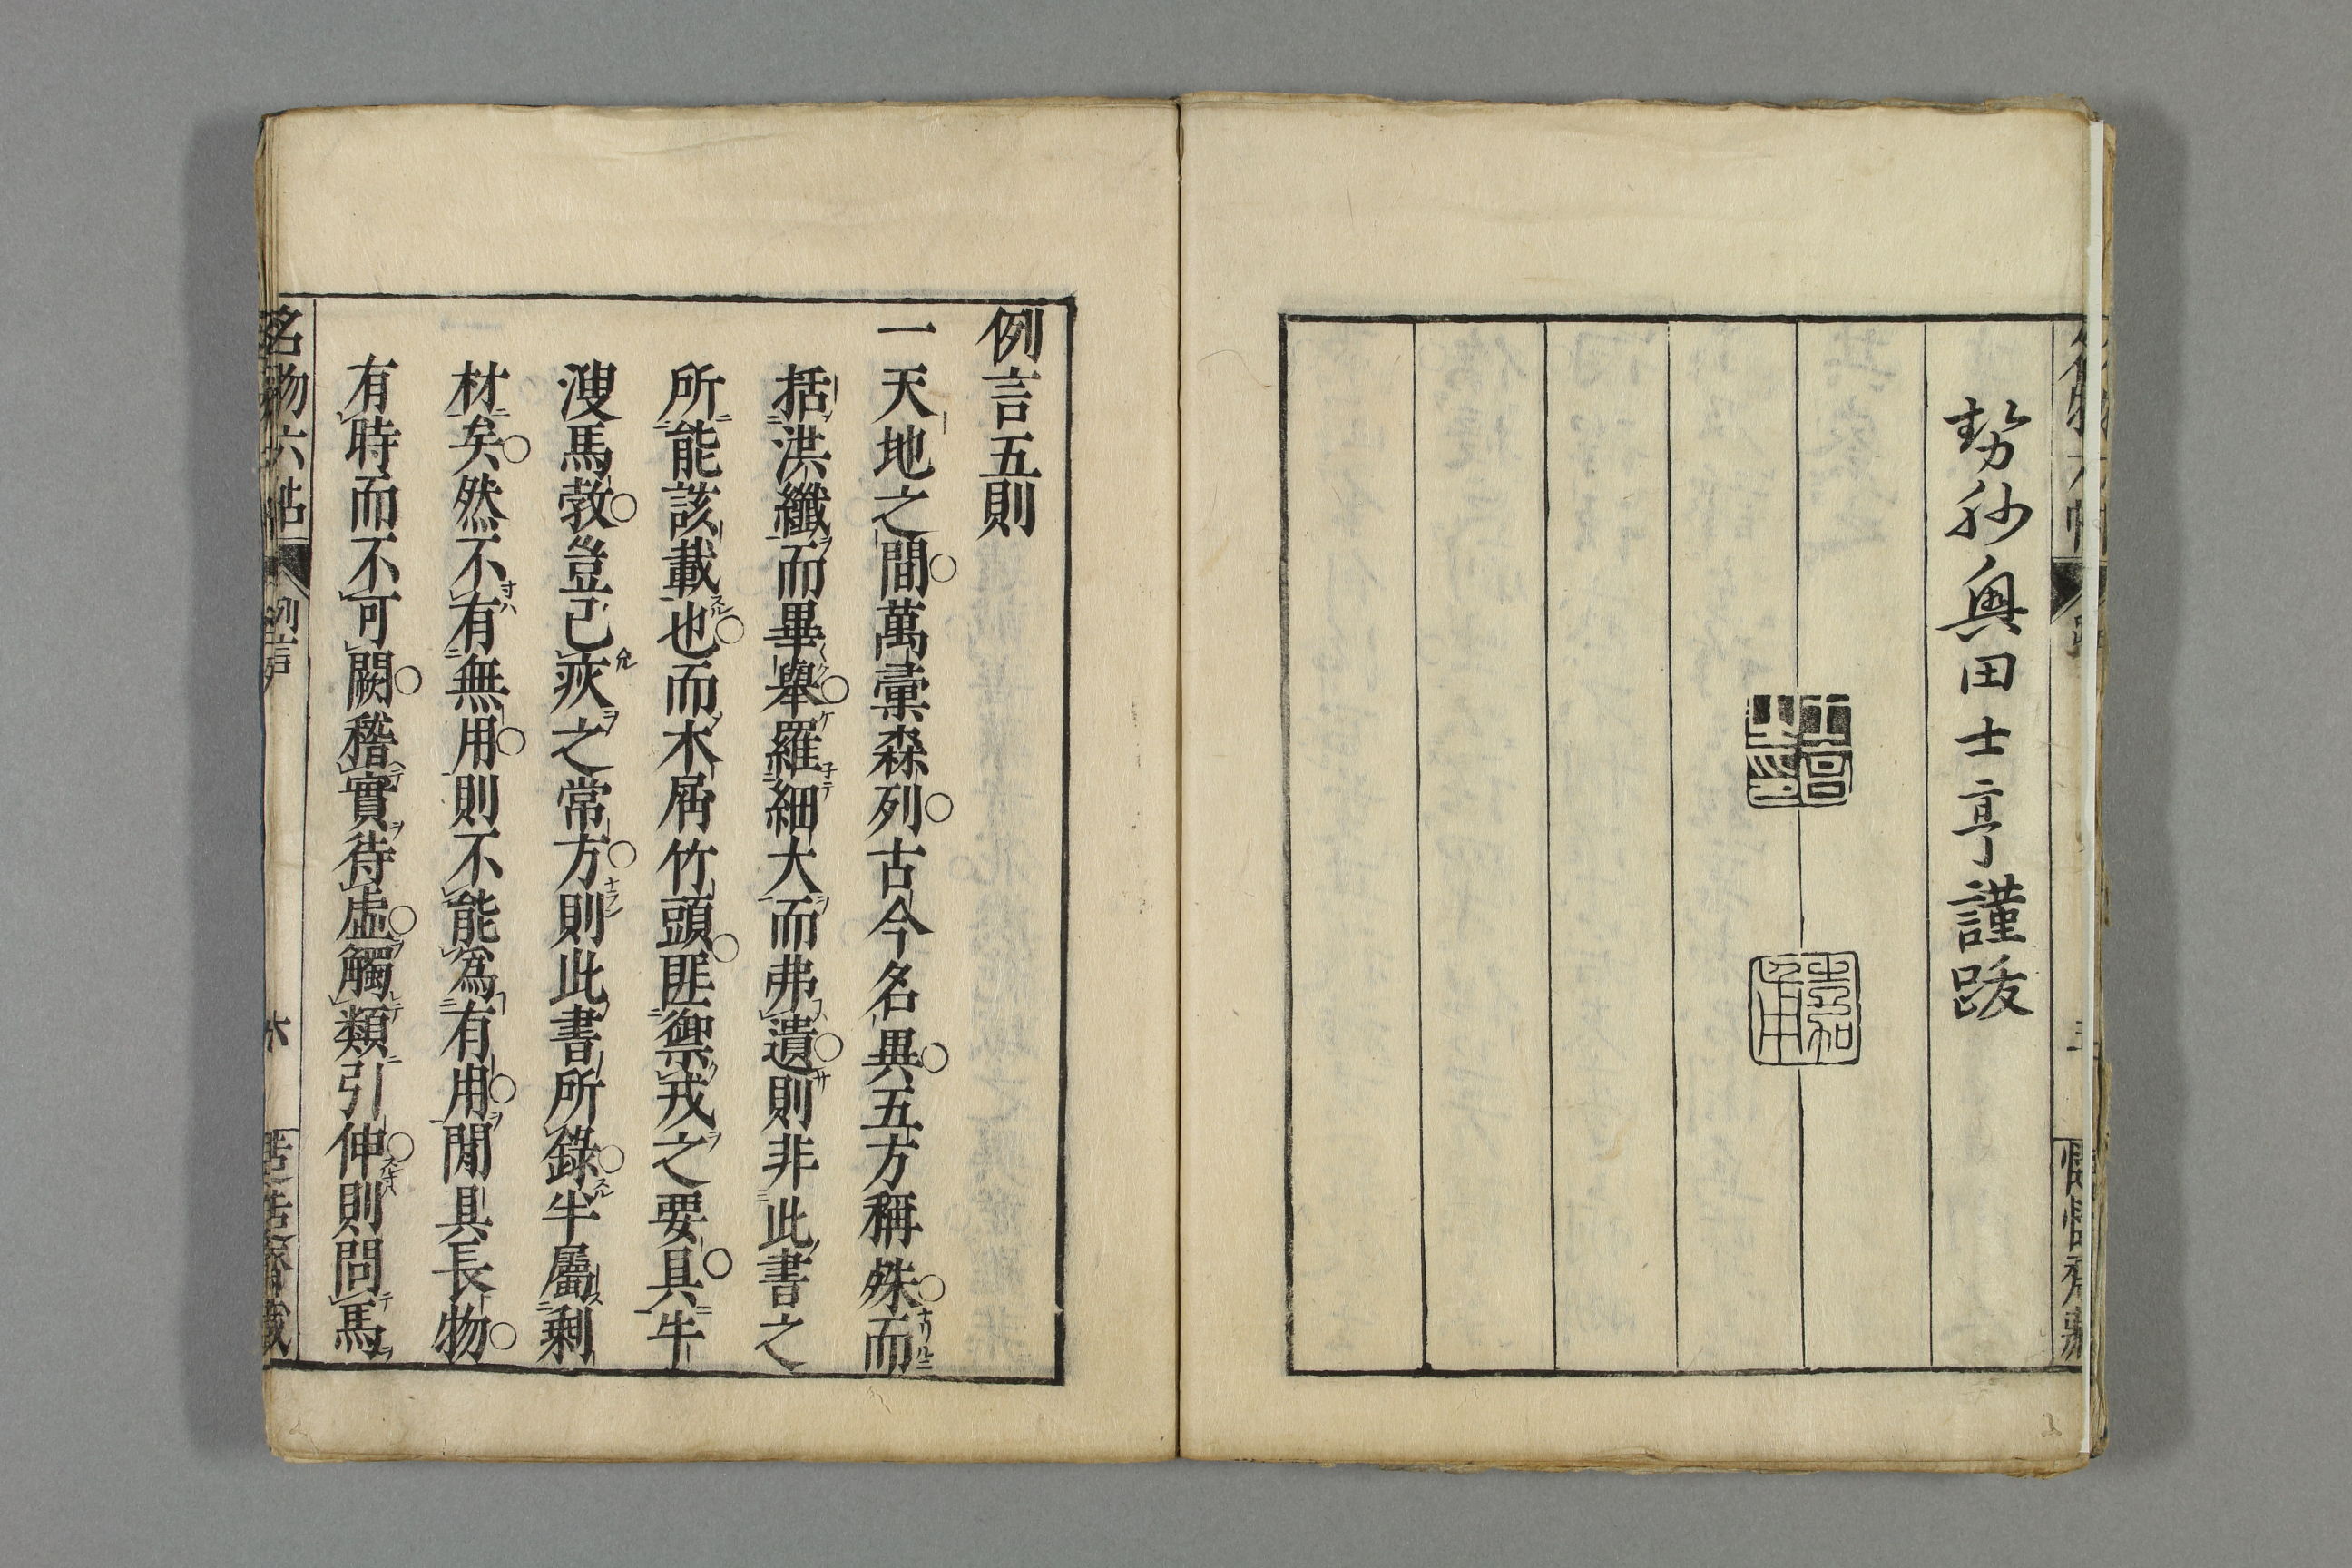 勢州奥田士亨謹跋
例言五則
一天地之間萬彙森列古今名異五方稱殊而
括洪纖而畢舉羅細大而弗遺則非此書之
所能該載也而木屑竹頭匪禦戎之要具牛
溲馬勃豈已疢之常方則此書所錄半屬剩
材矣然不有無用則不能為有用閒具長物
有時而不可闕稽實待虛觸類引伸則問馬
名物六帖 例言 六